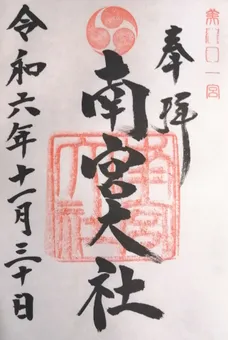 美濃国一宮
奉拝
南宮大社
南宮大社
令和六年十一月三十日